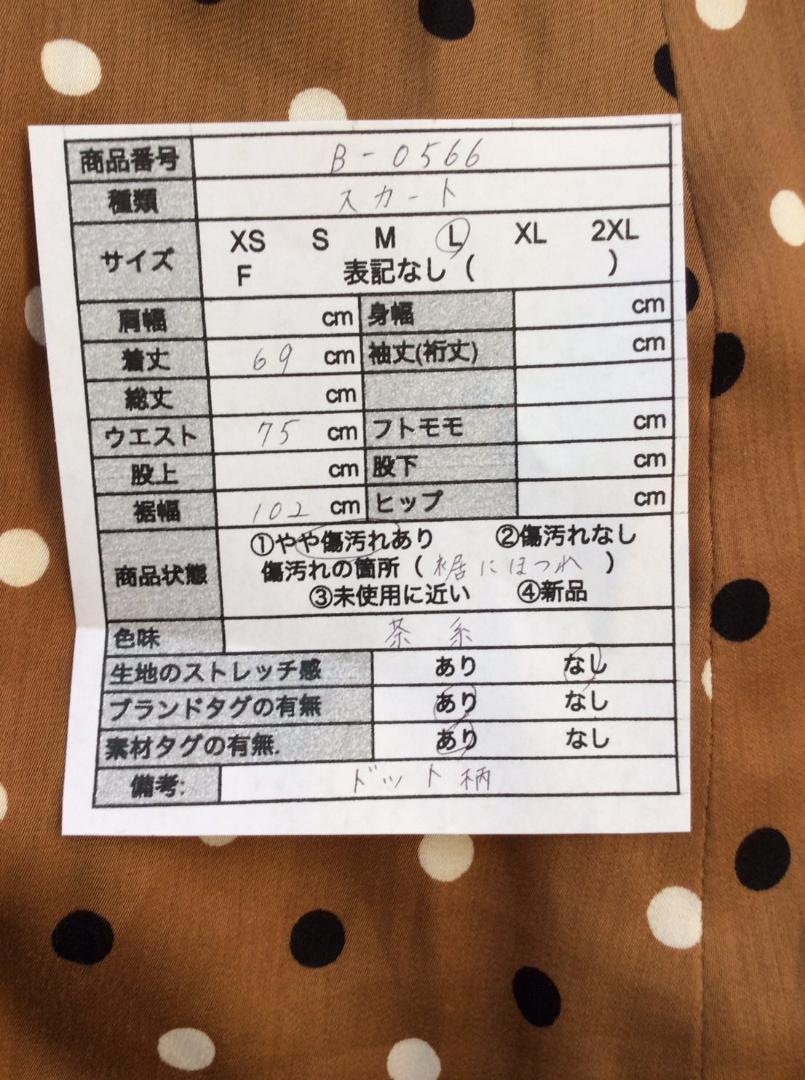 商品番号 B-0566
種類 スカート
サイズ XS S M L XL 2XL
F 表記なし ( )
肩幅 cm 身幅 cm
着丈 69 cm 袖丈(裄丈) cm
総丈 cm
ウエスト 75 cm フトモモ cm
股上 cm 股下 cm
裾幅 102 cm ヒップ cm
商品状態 ①やや傷汚れあり ②傷汚れなし
傷汚れの箇所 ( 裾にほつれ )
③未使用に近い ④新品
色味 茶系
生地のストレッチ感 あり なし
ブランドタグの有無 あり なし
素材タグの有無. あり なし
備考: ドット柄